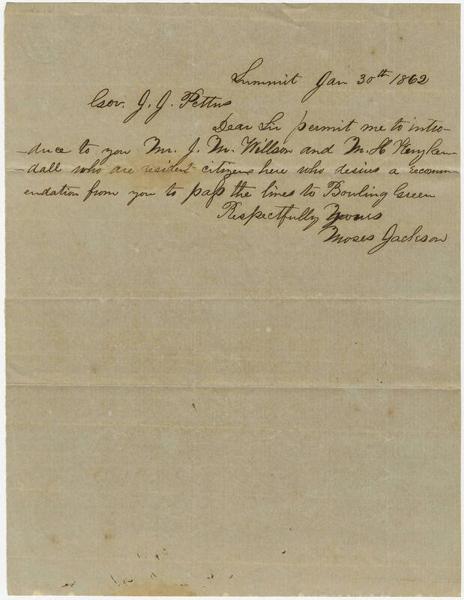 Summit Jan 30th 1862
Gov. J. J. Pettus
Dear Sir permit me to intro-
-duce to you Mr. J. M. Willson and M. H
-dall who are resident citizens here who desires a recomm-
endation from you to pass the lines to Bowling Green
Respectfully Yours
Moses Jackson